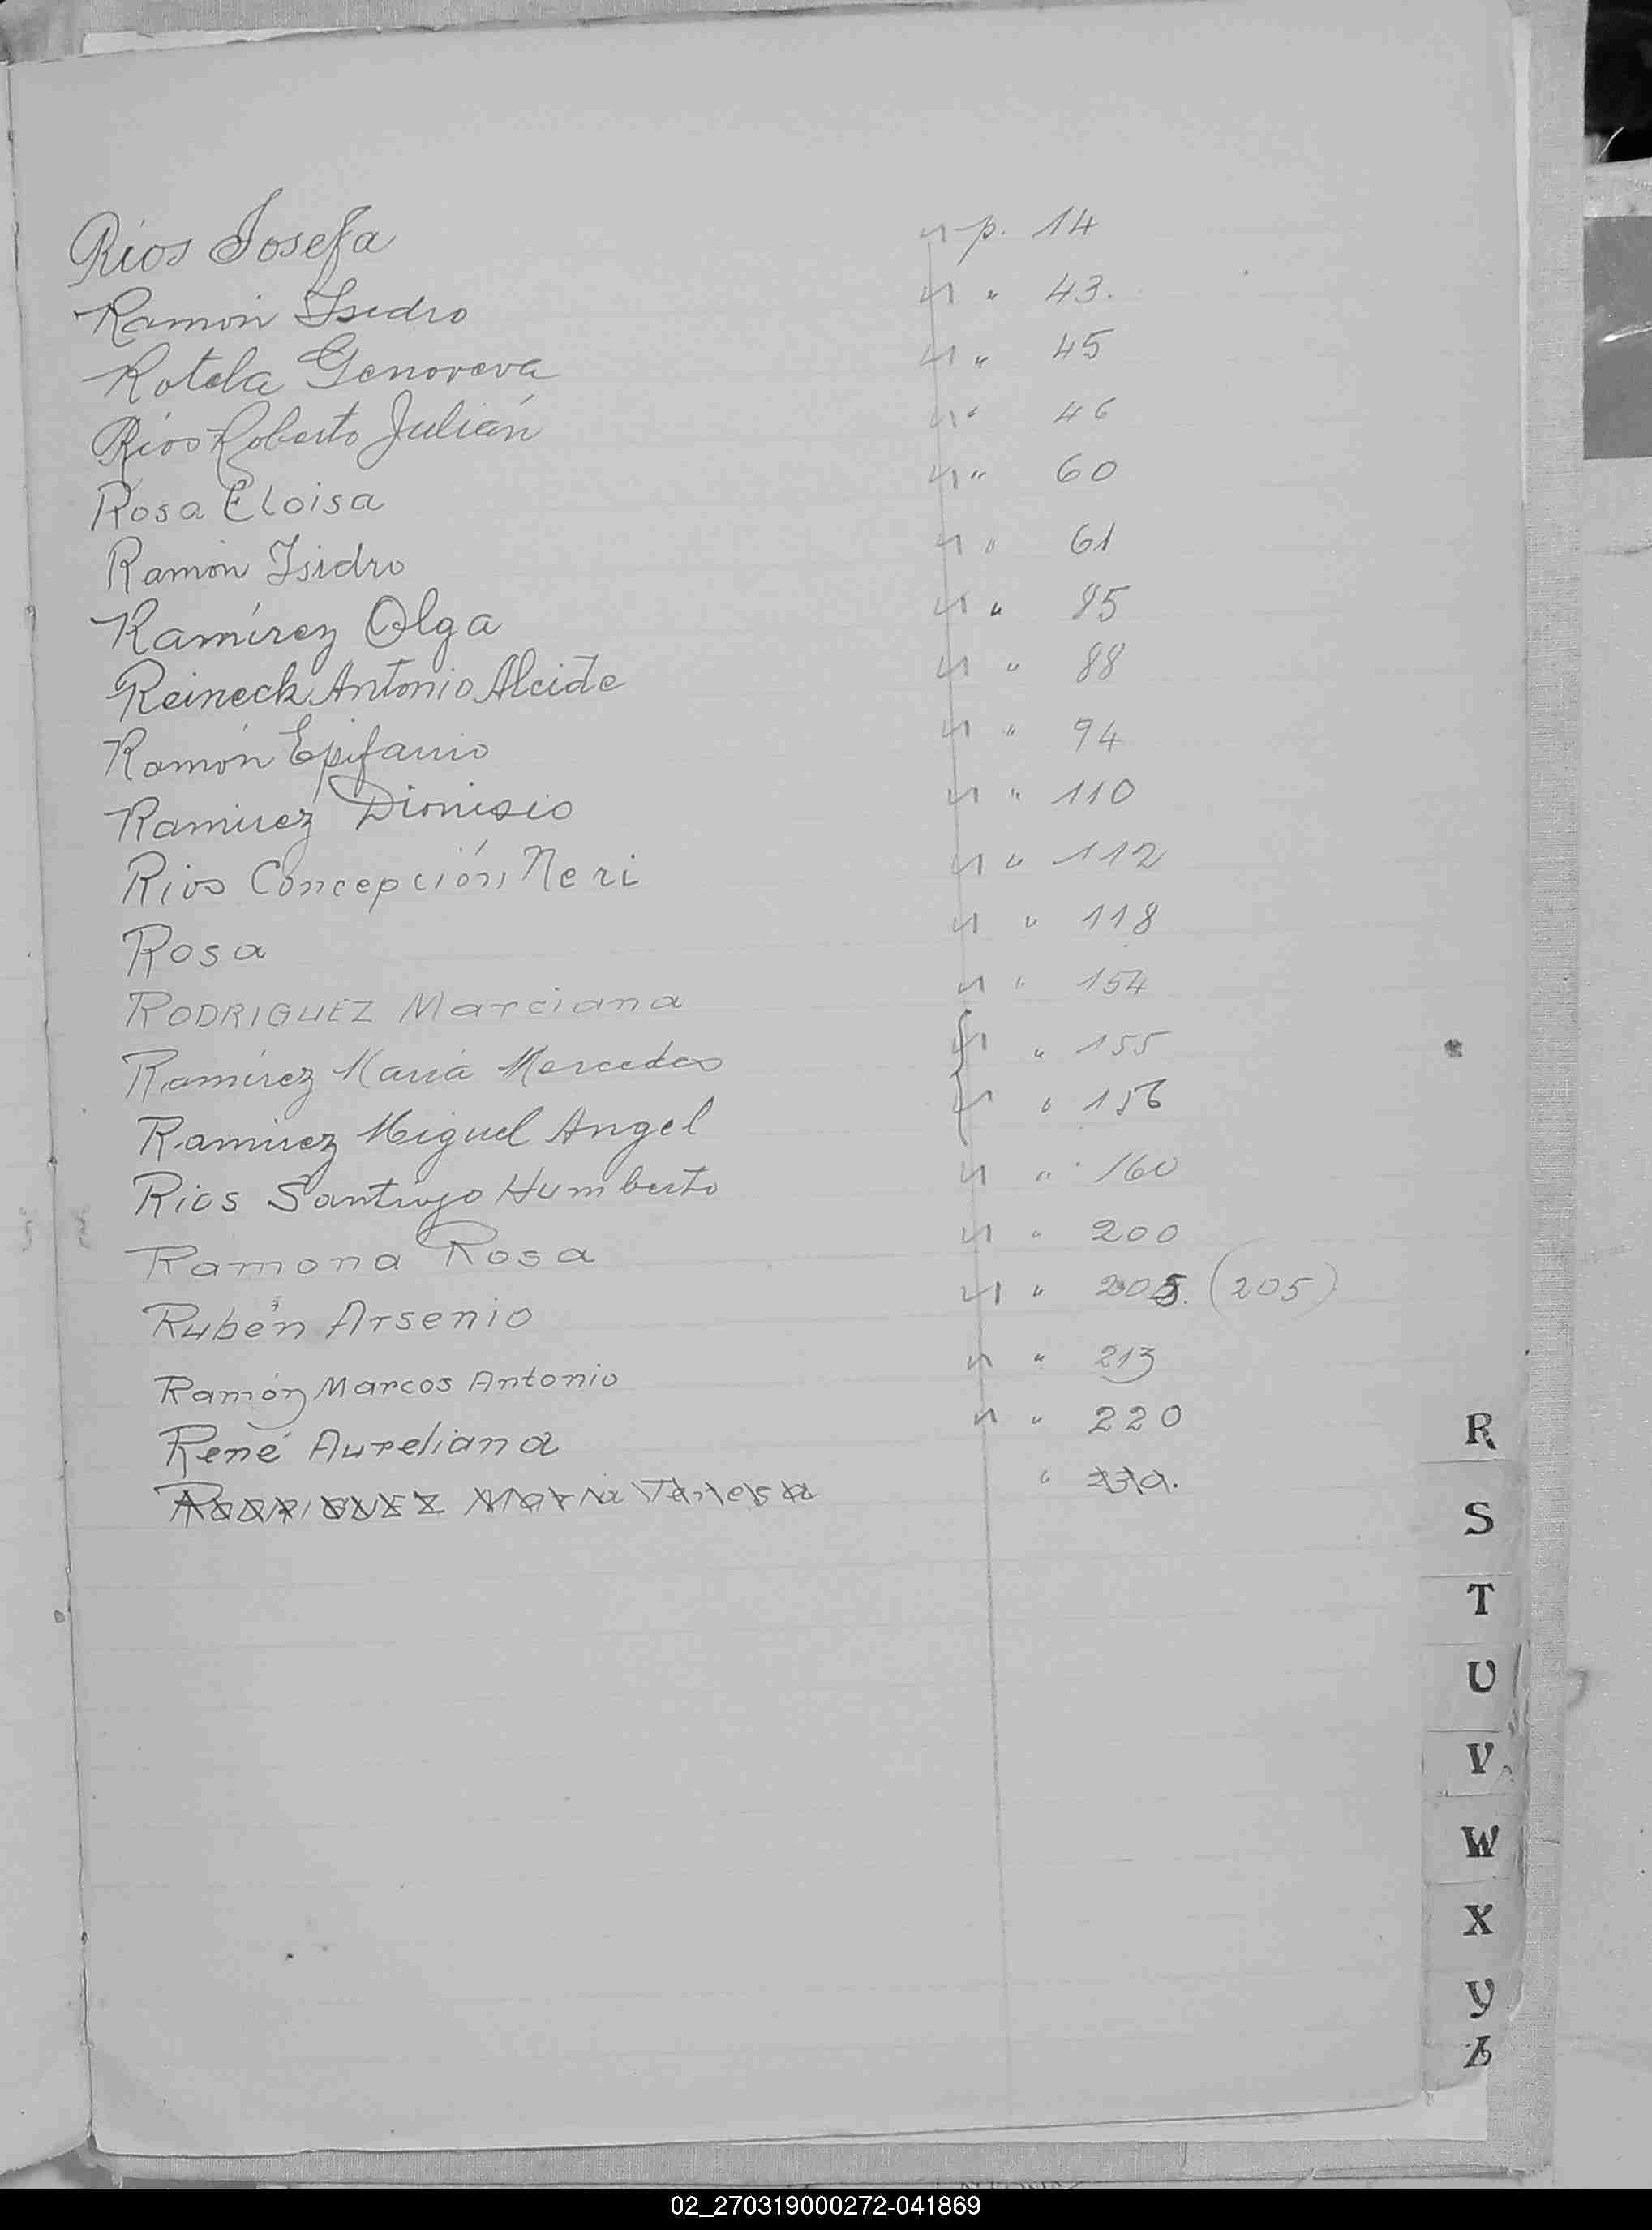 Ríos Josefa p. 14
Ramón Isidro " 43.
Rotela Genoveva " 45
Ríos Roberto Julián " 46
Rosa Eloisa " 60
Ramón Isidro " 61
Ramírez Olga " 85
Reineck Antonio Alcide " 88
Ramón Epifanio " 94
Ramirez Dionisio " 110
Rios Concepción Neri " 112
Rosa " 118
RODRIGUEZ Marciana " 154
Ramírez María Mercedes " 155
Ramirez Miguel Angel " 156
Rios Santiago Humberto " 160
Ramona Rosa " 200
Rubén Arsenio " 205. (205)
Ramón Marcos Antonio " 213
René Aureliana " 220
RODRIGUEZ María Teresa "
R
S
T
U
V
W
X
Y
Z
02_270319000272-041869